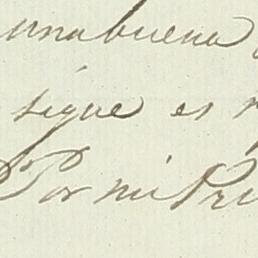 una buena
sigue es
Por mi Pri